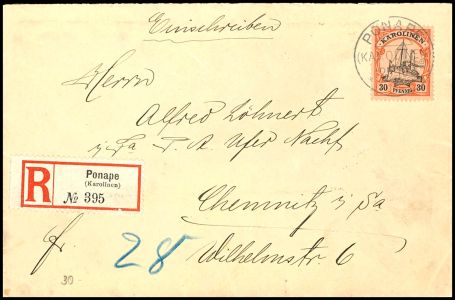 Einschreiben
PONAPE
KAROLINEN
30 PFENNIG 30
Herrn
Alfred Löhnert
i/Fa T. A. Ufer Nachf
R
Ponape
(Karolinen)
№ 395
Chemnitz i/Sa
fr. 28 Wilhelmstr 6
30